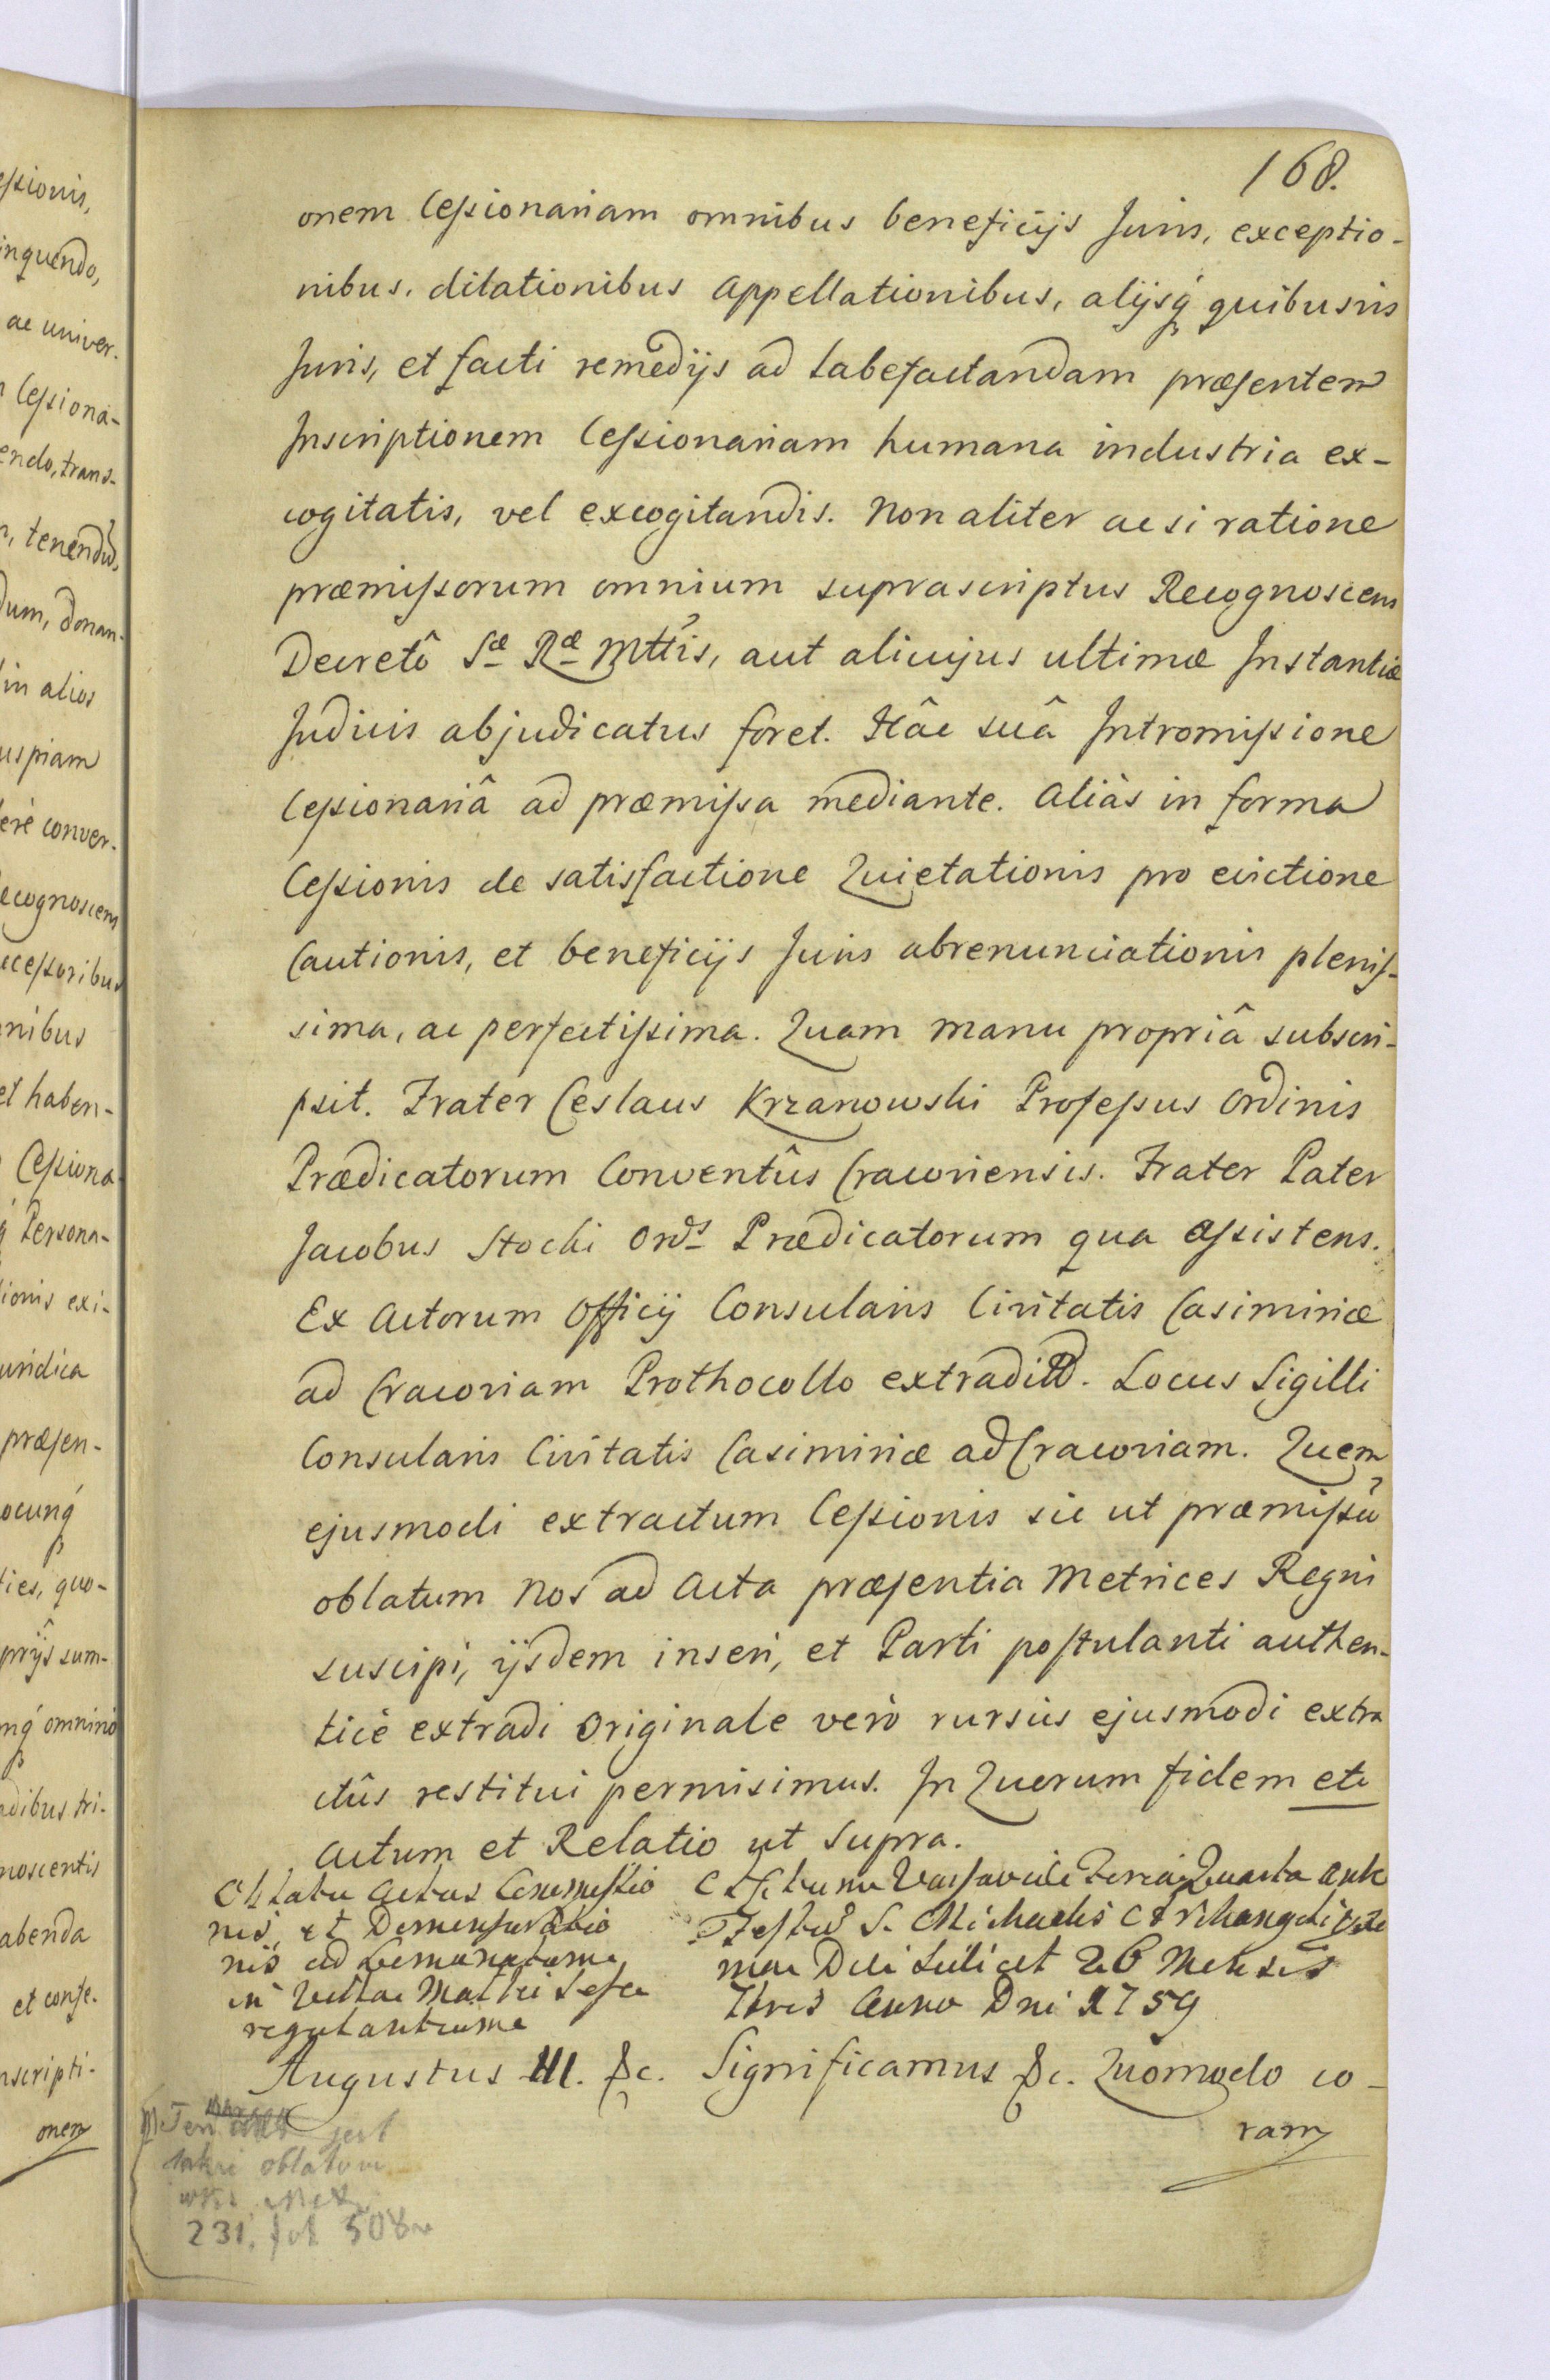 168.
onem Cessionariam omnibus beneficijs Juris, exceptio-
nibus, dilationibus appellationibus, alijsq́ quibusvis
Juris, et facti remedijs ad labefactandam præsentem
Inscriptionem Cessionariam humana industria ex-
cogitatis, vel excogitandis. Non aliter ac si ratione
præmissorum omnium suprascriptus Recognoscens
Decretô Sæ Ræ Mttis, aut alicujus ultimæ Instantiæ
Judicis abjudicatus foret. Hâc suâ Intromissione
Cessionariâ ad præmissa mediante. Aliàs in forma
Cessionis de satisfactione Quietationis pro evictione
Cautionis, et beneficijs Juris abrenunciationis plenis-
sima, ac perfectissima. Quam manu propriâ subscri-
psit. Frater Ceslaus Krzanowski Professus Ordinis
Prædicatorum Conventûs Cracoviensis. Frater Pater
Jacobus Stocki Ords Prædicatorum qua Assistens.
Ex Actorum Officij Consularis Civitatis Casimiriæ
ad Cracoviam Prothocollo extradit. Locus Sigilli
Consularis Civitatis Casimiriæ ad Cracoviam. Quem
ejusmodi extractum Cessionis sic ut præmissũ
oblatum Nos ad Acta præsentia Metrices Regni
suscipi, ijsdem inseri, et Parti postulanti authen-
ticè extradi Originale verò rursùs ejusmodi extra
ctûs restitui permisimus. In Quorum fidem etc
Actum et Relatio ut Supra.
Oblata Actus Commissio
nis, et Dimensuratio
nis ad
in Villa
regulantium
Actum Varsaviæ Feria Quarta ante
Festũ S. Michaelis Archangeli
Die scilicet 26 Mensis
7bris Anno Dni 1759
Augustus III. &c. Significamus &c. Quomodo co-
ram
Ten jest
oblatum
231. fol 508
essionis,
inquendo,
ac univer-
Cessiona-
endo, trans-
tenendũ,
dum, donan-
in alios
uspiam
erè conver-
ecognoscens
ccessoribus
nibus
et haben-
Cessiona
q́ Persona-
ionis exi-
uridica
præsen-
ocunq́
ties, quo-
prijs sum-
nq́ omninò
adibus tri-
noscentis
abenda
et confe-
nscripti-
onem